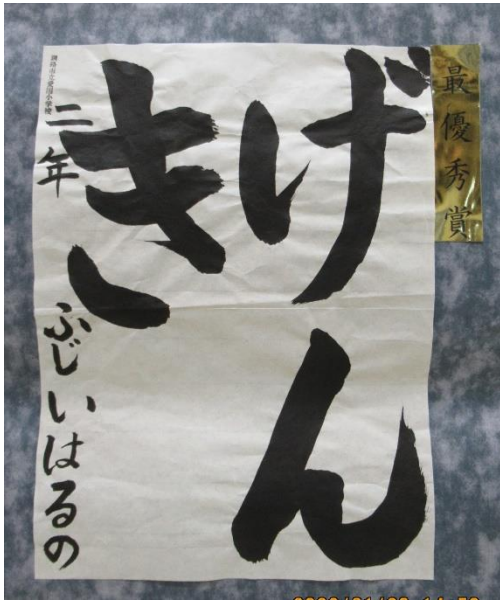 最優秀賞
げん
き
二年 ふじいはるの